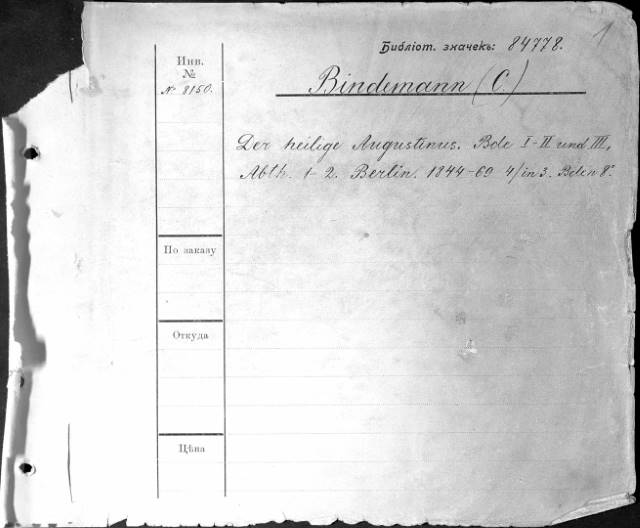 Библіот. значекъ: 84778.
1
Инв.
№
№ 8150.
Bindemann (C.)
Der heilige Augustinus. Bde I-II und III,
Abth. 1-2. Berlin. 1844-69 4/in 3. Bden 8°.
По заказу
Откуда
Цѣна